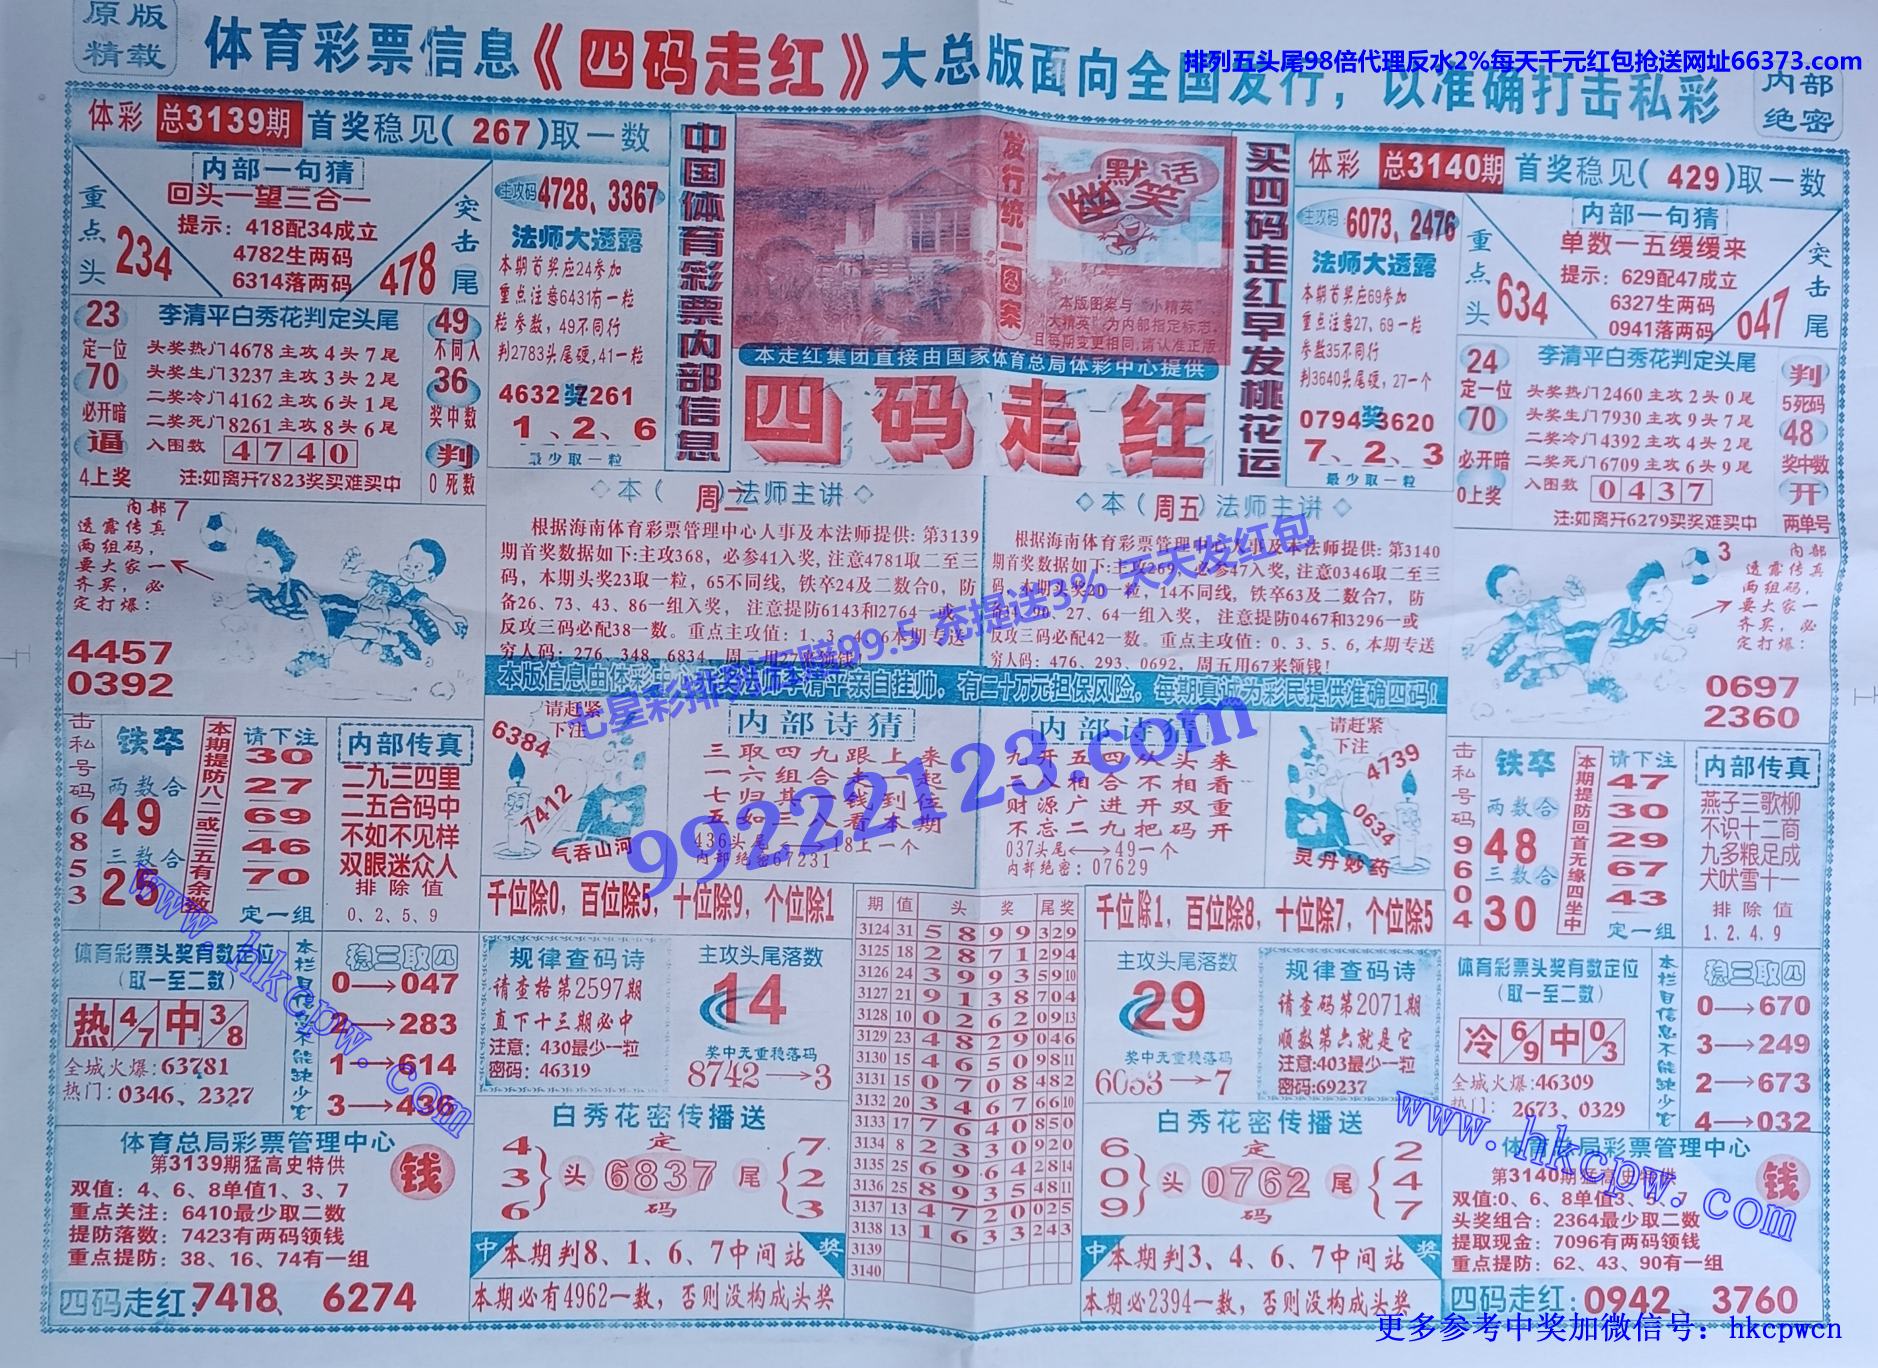 原版
精载
体育彩票信息《四码走红》大总版面向全国发行，以准确打击私彩
排列五头尾98倍代理反水2%每天千元红包抢送网址66373.com
内部
绝密
体彩 总3139期 首奖稳见(267)取一数
内部一句猜
回头一望三合一
提示：418配34成立
4782生两码
6314落两码
重点头
234
突击尾
478
主攻码 4728、3367
法师大透露
本期首奖应24参加
重点注意6431有一粒
粒参数，49不同行
判2783头尾硬,41一粒
4632奖7261
1、2、6
最少取一粒
23
定一位
70
必开暗
逼
4上奖
李清平白秀花判定头尾
头奖热门4678主攻4头7尾
头奖生门3237主攻3头2尾
二奖冷门4162主攻6头1尾
二奖死门8261主攻8头6尾
入围数 4740
注:如离开7823奖买难买中
49
不同人
36
奖中数
判
0死数
中国体育彩票内部信息
发行统一图案
幽默笑话
本版图案与“小精英”
大精英”为内部指定标志,
且每期变更相同,请认准正版
本走红集团直接由国家体育总局体彩中心提供
四码走红
买四码走红早发桃花运
体彩 总3140期 首奖稳见(429)取一数
内部一句猜
单数一五缓缓来
提示：629配47成立
6327生两码
0941落两码
重点头
634
突击尾
047
主攻码 6073、2476
法师大透露
本期首奖应69参加
重点注意27,69一粒
参数35不同行
判3640头尾硬,27一个
0794奖3620
7、2、3
最少取一粒
24
定一位
70
必开暗
0上奖
李清平白秀花判定头尾
头奖热门2460主攻2头0尾
头奖生门7930主攻9头7尾
二奖冷门4392主攻4头2尾
二奖死门6709主攻6头9尾
入围数 0437
注:如离开6279买奖难买中
判
5死码
48
奖中数
开
两单号
内部
透露传真
两组码，
要大家一
齐买，必
定打爆：
7
4457
0392
◇本（周二）法师主讲◇
根据海南体育彩票管理中心人事及本法师提供: 第3139
期首奖数据如下:主攻368，必参41入奖, 注意4781取二至三
码，本期头奖23取一粒，65不同线, 铁卒24及二数合0，防
备26、73、43、86一组入奖， 注意提防6143和2764一或
反攻三码必配38一数。重点主攻值：1、3、4、6本期专送
穷人码：276、348、6834，周二用27来领钱!
◇本（周五）法师主讲◇
根据海南体育彩票管理中心人事及本法师提供: 第3140
期首奖数据如下:主攻269，必参47入奖, 注意0346取二至三
码, 本期头奖20一粒，14不同线, 铁卒63及二数合7，防
备04、96、27、64一组入奖， 注意提防0467和3296一或
反攻三码必配42一数。重点主攻值：0、3、5、6, 本期专送
穷人码：476、293、0692，周五用67来领钱!
3
内部
透露传真
两组码，
要大家一
齐买，必
定打爆：
0697
2360
七星彩排列五赚99.5 充提送3% 天天发红包
99222123.com
击私号码68553
铁卒
两数合
49
三数合
25
本期提防八二或三五有余数
请下注
30
27
69
46
70
定一组
内部传真
二九三四里
二五合码中
不如不见样
双眼迷众人
排除值
0、2、5、9
请赶紧下注
6384
7412
气吞山河
内部诗猜
三取四九跟上来
一六组合去一起
五如三入看本期
436头尾
18上一个
内部绝密67231
内部诗猜
九开五四从头来
二人相合不相看
财源广进开双重
不忘二九把码开
037头尾⟷49一个
内部绝密：07629
请赶紧下注
4739
0634
灵丹妙药
击私号码9604
铁卒
两数合
48
三数合
30
本期提防回首无缘四坐中
请下注
47
30
29
67
43
定一组
内部传真
燕子三歌柳
不识十二商
九多粮足成
犬吠雪十一
排除值
1、2、4、9
千位除0，百位除5，十位除9，个位除1
千位除1，百位除8，十位除7，个位除5
期 值 头 奖 尾奖
3124 31 5 8 9 9 329
3125 18 2 8 7 1 294
3126 24 3 9 9 3 5910
3127 21 9 1 3 8 704
3128 10 0 2 6 2 0913
3129 23 4 8 2 9 046
3130 15 4 6 5 0 9811
3131 15 0 7 0 8 482
3132 20 3 4 6 7 6610
3133 17 7 6 4 0 850
3134 8 2 3 3 0 920
3135 25 6 9 6 4 2814
3136 25 8 9 3 5 4811
3137 13 4 7 2 0 025
3138 13 1 6 3 3 243
3139
3140
体育彩票头奖有数定位
（取一至二数）
热 4/7 中 3/8
全城火爆:63781
热门：0346、2327
稳三取四
0→047
2→283
1→614
3→436
规律查码诗
请查格第2597期
直下十三期必中
注意：430最少一粒
密码：46319
主攻头尾落数
14
奖中无重稳落码
8742→3
主攻头尾落数
29
奖中无重稳落码
6053→7
规律查码诗
请查码第2071期
顺数第六就是它
注意:403最少一粒
密码:69237
体育彩票头奖有数定位
（取一至二数）
冷 6/9 中 0/3
全城火爆:46309
热门： 2673、0329
稳三取四
0→670
3→249
2→673
4→032
体育总局彩票管理中心
第3139期猛高史特供
钱
双值：4、6、8单值1、3、7
重点关注：6410最少取二数
提防落数：7423有两码领钱
重点提防：38、16、74有一组
四码走红:7418、6274
白秀花密传播送
4 3 6 头 定 6837 码 尾 7 2 3
中 本期判8、1、6、7中间站 奖
本期必有4962一数，否则没构成头奖
白秀花密传播送
6 0 9 头 定 0762 码 尾 2 4 7
中 本期判3、4、6、7中间站 奖
本期必2394一数，否则没构成头奖
体育总局彩票管理中心
第3140期猛高史特供
钱
头奖组合：2364最少取二数
提取现金：7096有两码领钱
重点提防：62、43、90有一组
四码走红:0942、3760
www.hkcpw.com
www.hkcpw.com
更多参考中奖加微信号：hkcpwcn